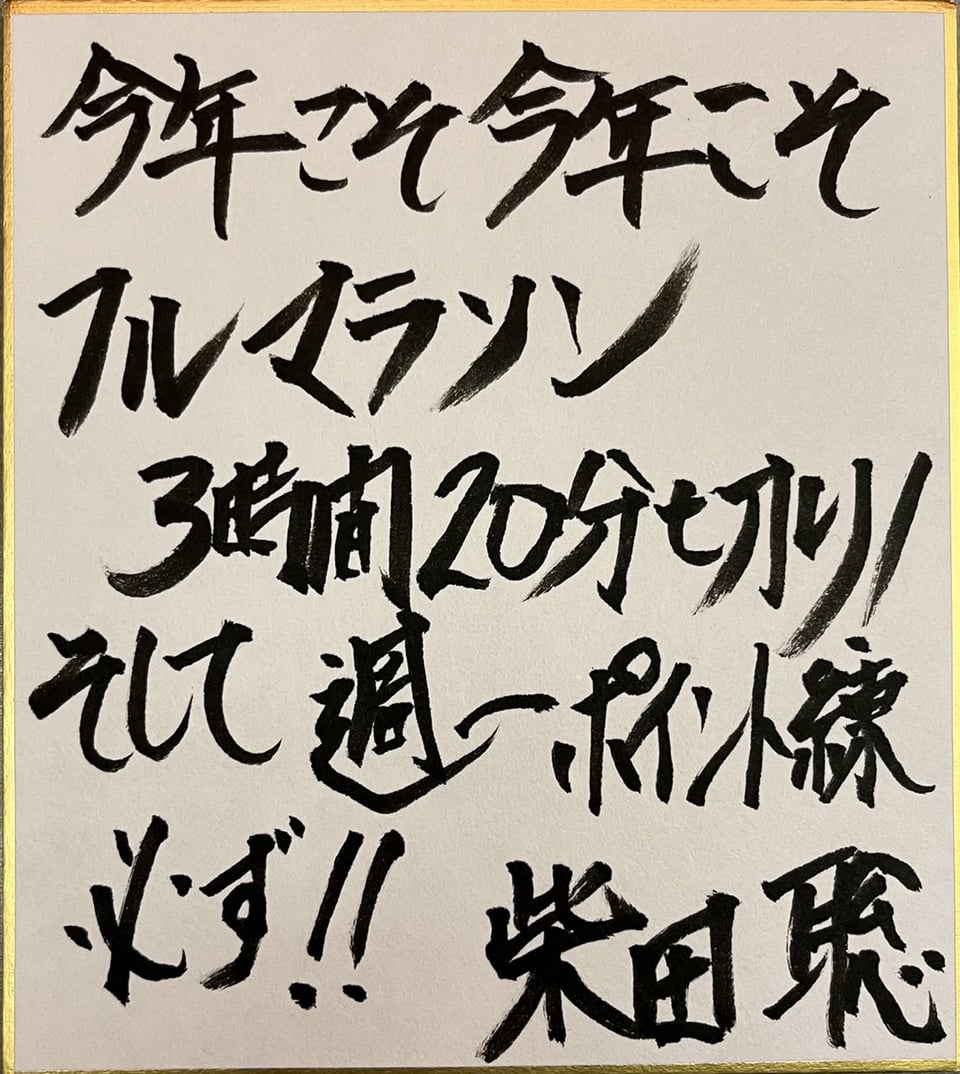 今年こそ今年こそ
フルマラソン
3時間20分切り!
そして週一ポイント練
必ず!!
柴田聡